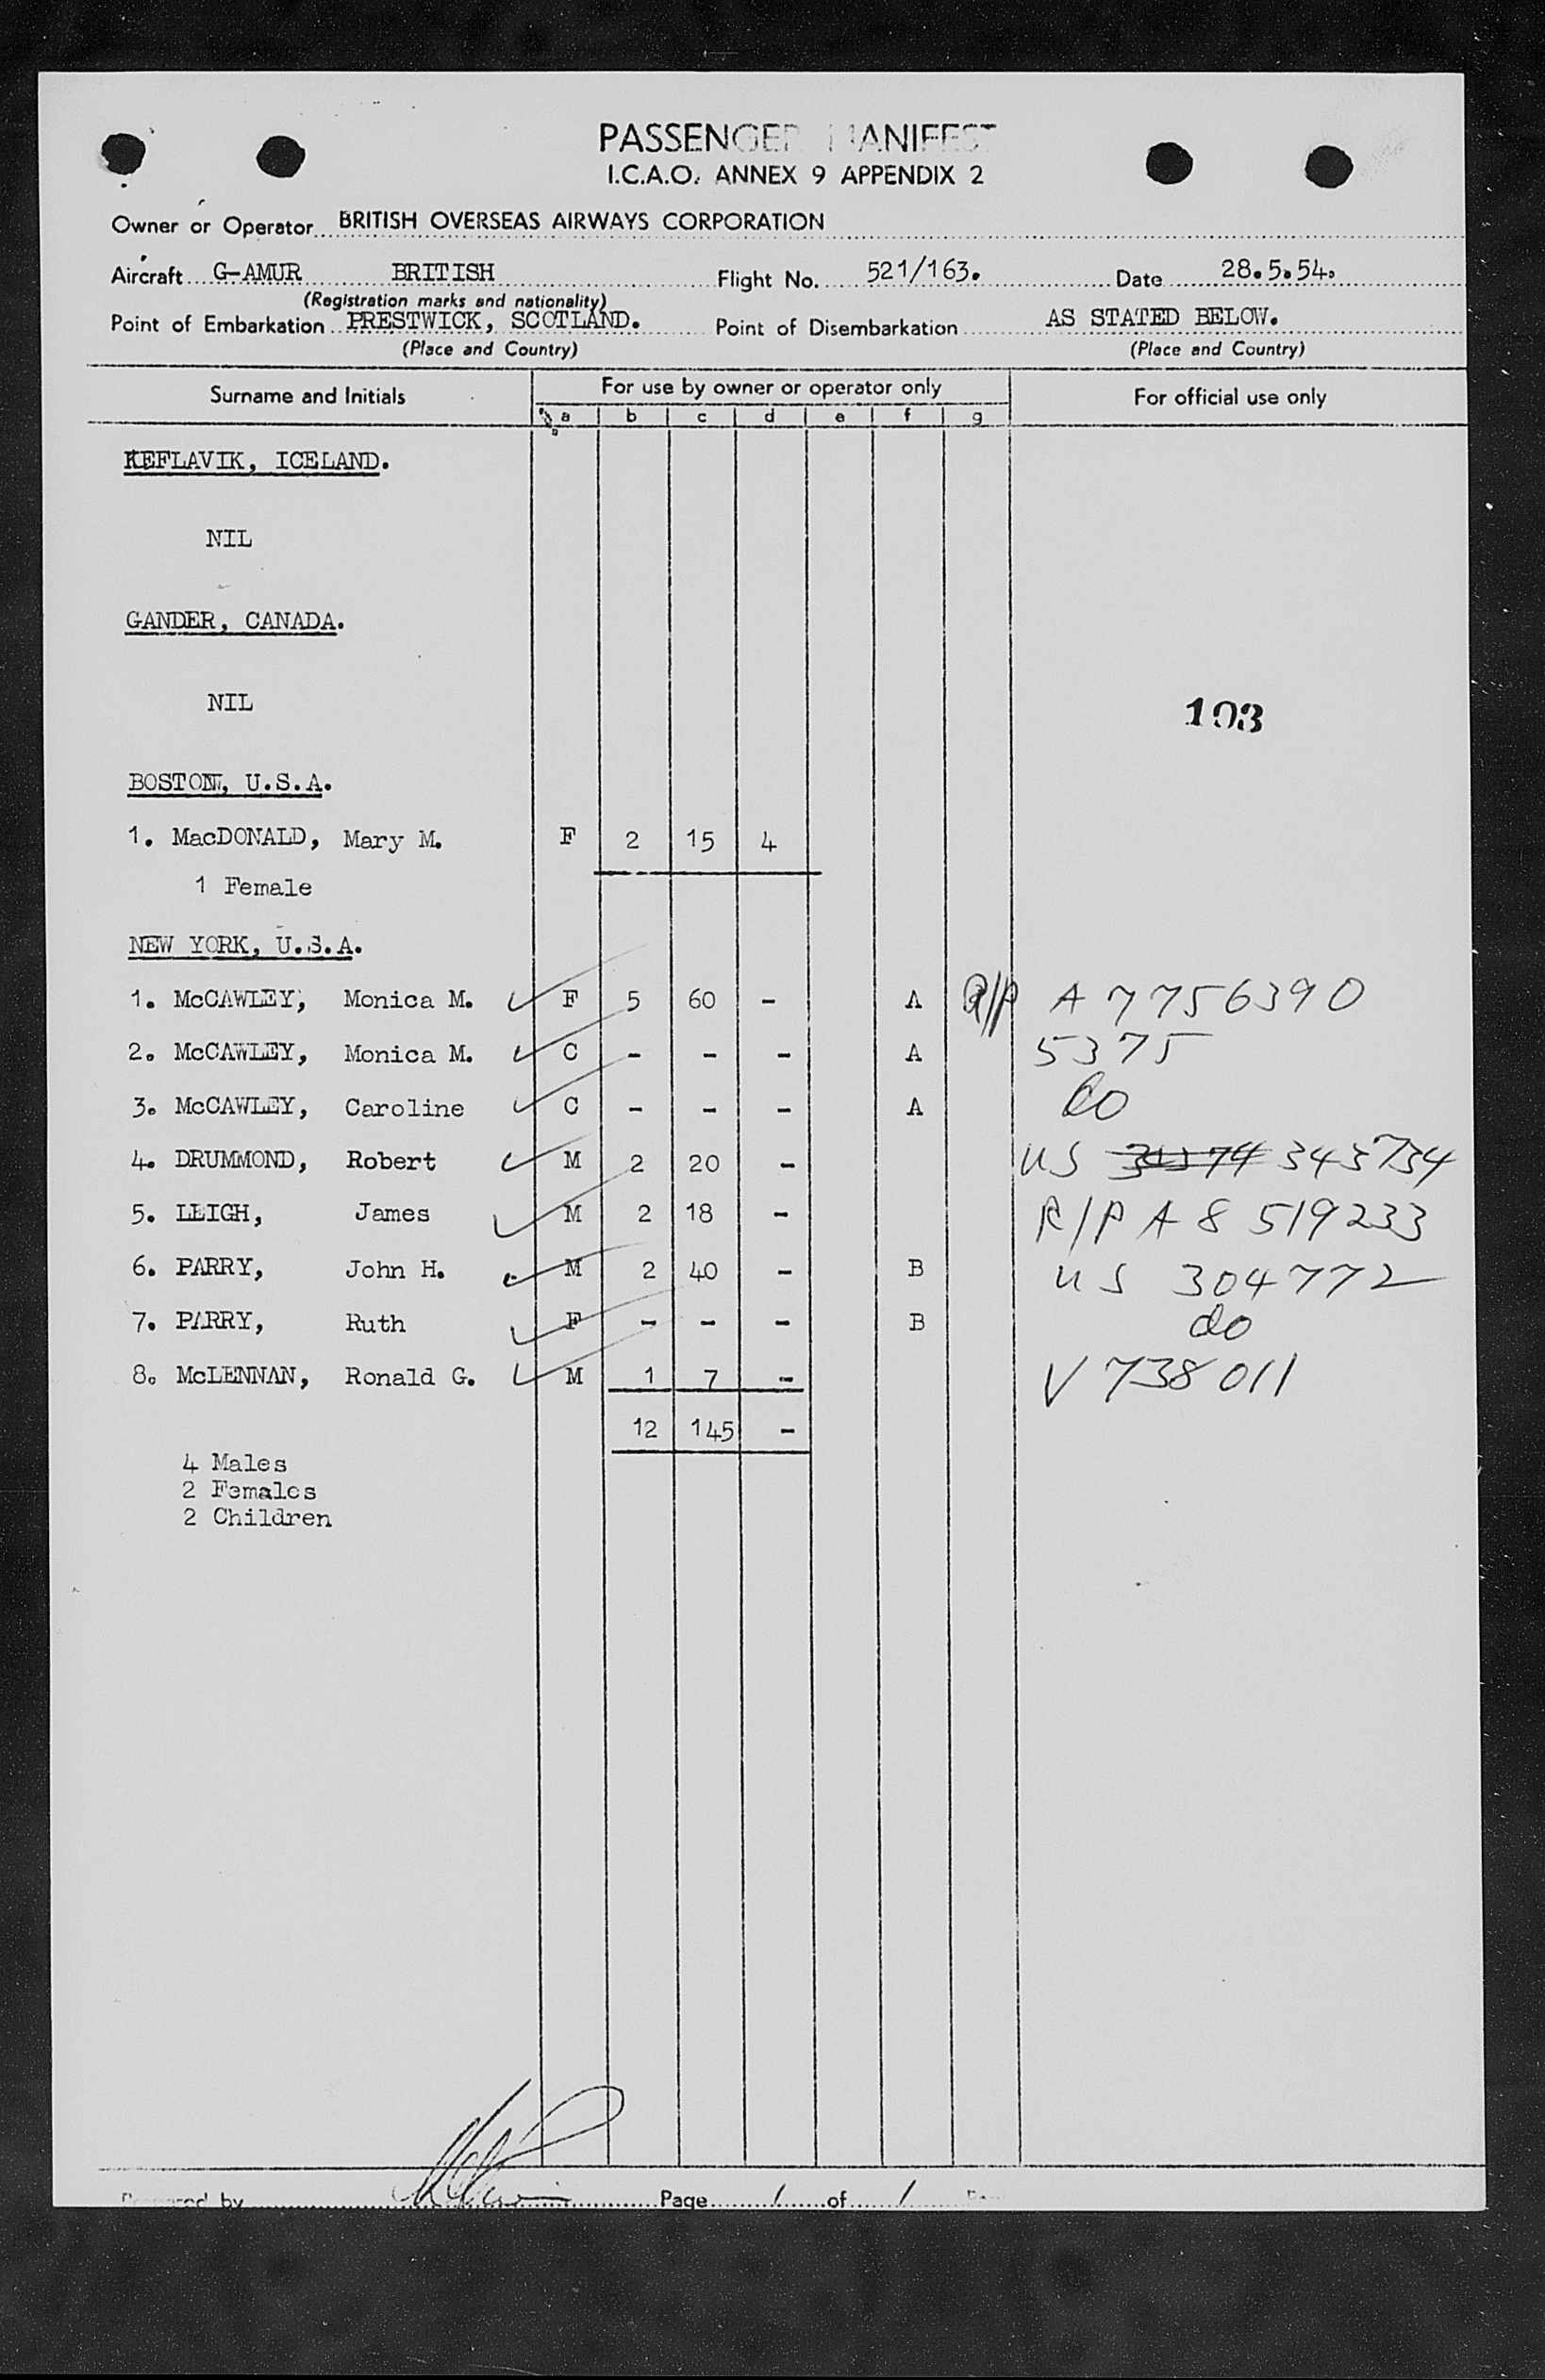 PASSENGER MANIFEST
I.C.A.O. ANNEX 9 APPENDIX 2
Owner or Operator BRITISH OVERSEAS AIRWAYS CORPORATION
Aircraft G-AMUR BRITISH Flight No. 521/163. Date 28.5.54.
(Registration marks and nationality)
Point of Embarkation PRESTWICK, SCOTLAND. Point of Disembarkation AS STATED BELOW.
(Place and Country) (Place and Country)
Surname and Initials For use by owner or operator only For official use only
a b c d e f g
KEFLAVIK, ICELAND.
NIL
GANDER, CANADA.
NIL
103
BOSTON, U.S.A.
1. MacDONALD, Mary M. F 2 15 4
1 Female
NEW YORK, U.S.A.
1. McCAWLEY, Monica M. F 5 60 - A R/P A 7756390
2. McCAWLEY, Monica M. C - - - A 5375
3. McCAWLEY, Caroline C - - - A do
4. DRUMMOND, Robert M 2 20 - US 343734
5. LEIGH, James M 2 18 - R/P A 8 519233
6. PARRY, John H. M 2 40 - B US 304772
7. PARRY, Ruth F - - - B do
8. McLENNAN, Ronald G. M 1 7 - V 738011
12 145 -
4 Males
2 Females
2 Children
Prepared by Page 1 of 1